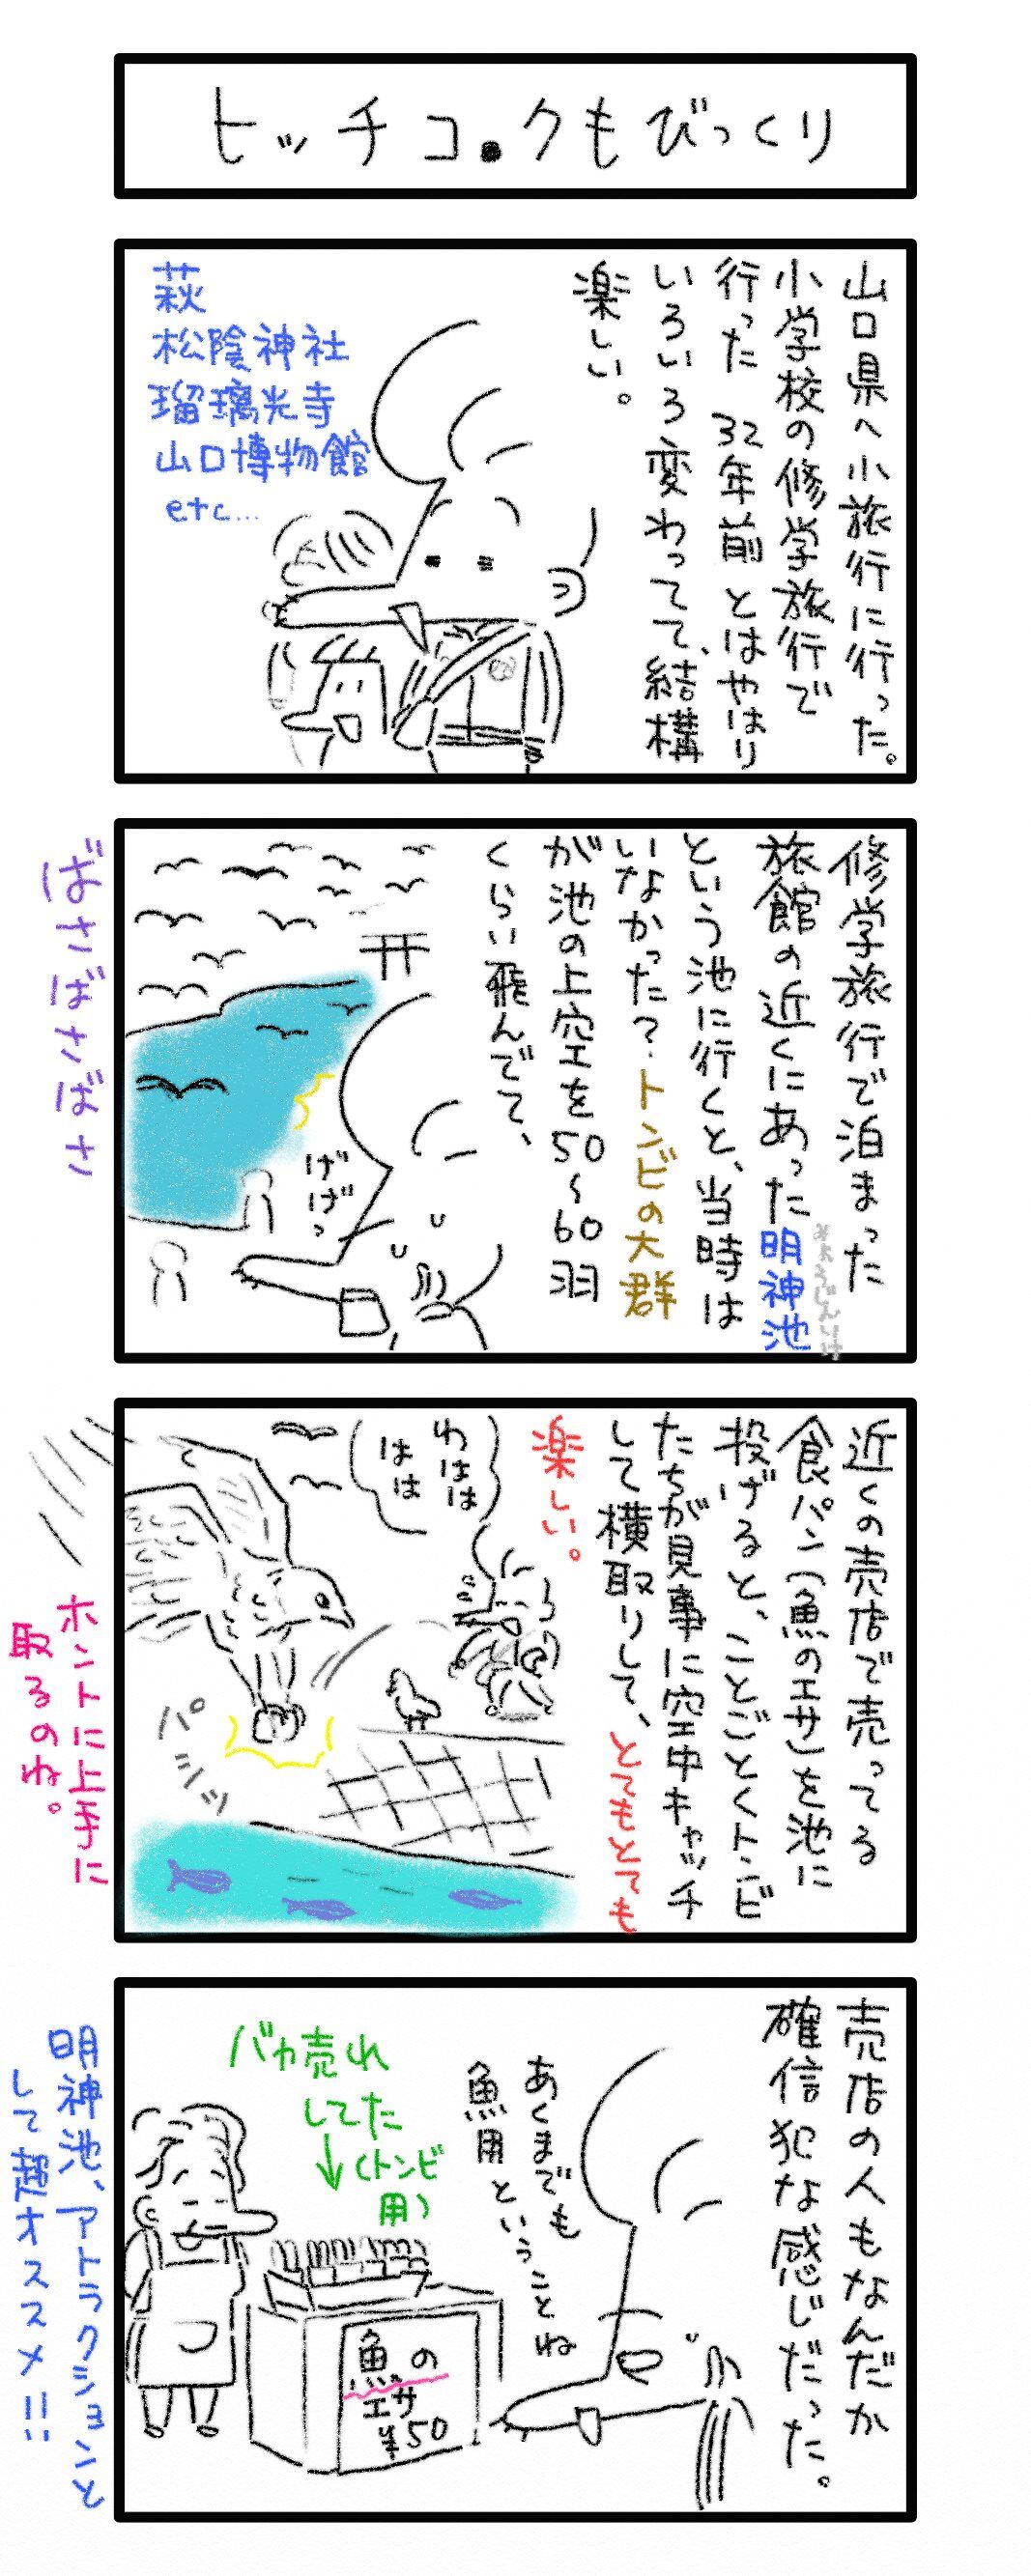 ヒッチコックもびっくり
山口県へ小旅行に行った。
小学校の修学旅行で
行った 32年前とはやはり
いろいろ変わってて、結構
楽しい。
萩
松陰神社
瑠璃光寺
山口博物館
etc...
修学旅行で泊まった
旅館の近くにあった明神池
みょうじんいけ
という池に行くと、当時は
いなかった?トンビの大群
が池の上空を50〜60羽
くらい飛んでて、
げげっ
ばさばさばさ
近くの売店で売ってる
食パン(魚のエサ)を池に
投げると、ことごとくトンビ
たちが見事に空中キャッチ
して横取りして、とてもとても
楽しい。
わはは
はは
パシッ
ホントに上手に
取るのね。
売店の人もなんだか
確信犯な感じだった。
あくまでも
魚用ということね
バカ売れ
してた
(トンビ
用)
魚の
エサ
¥50
明神池、アトラクションと
して超オススメ!!